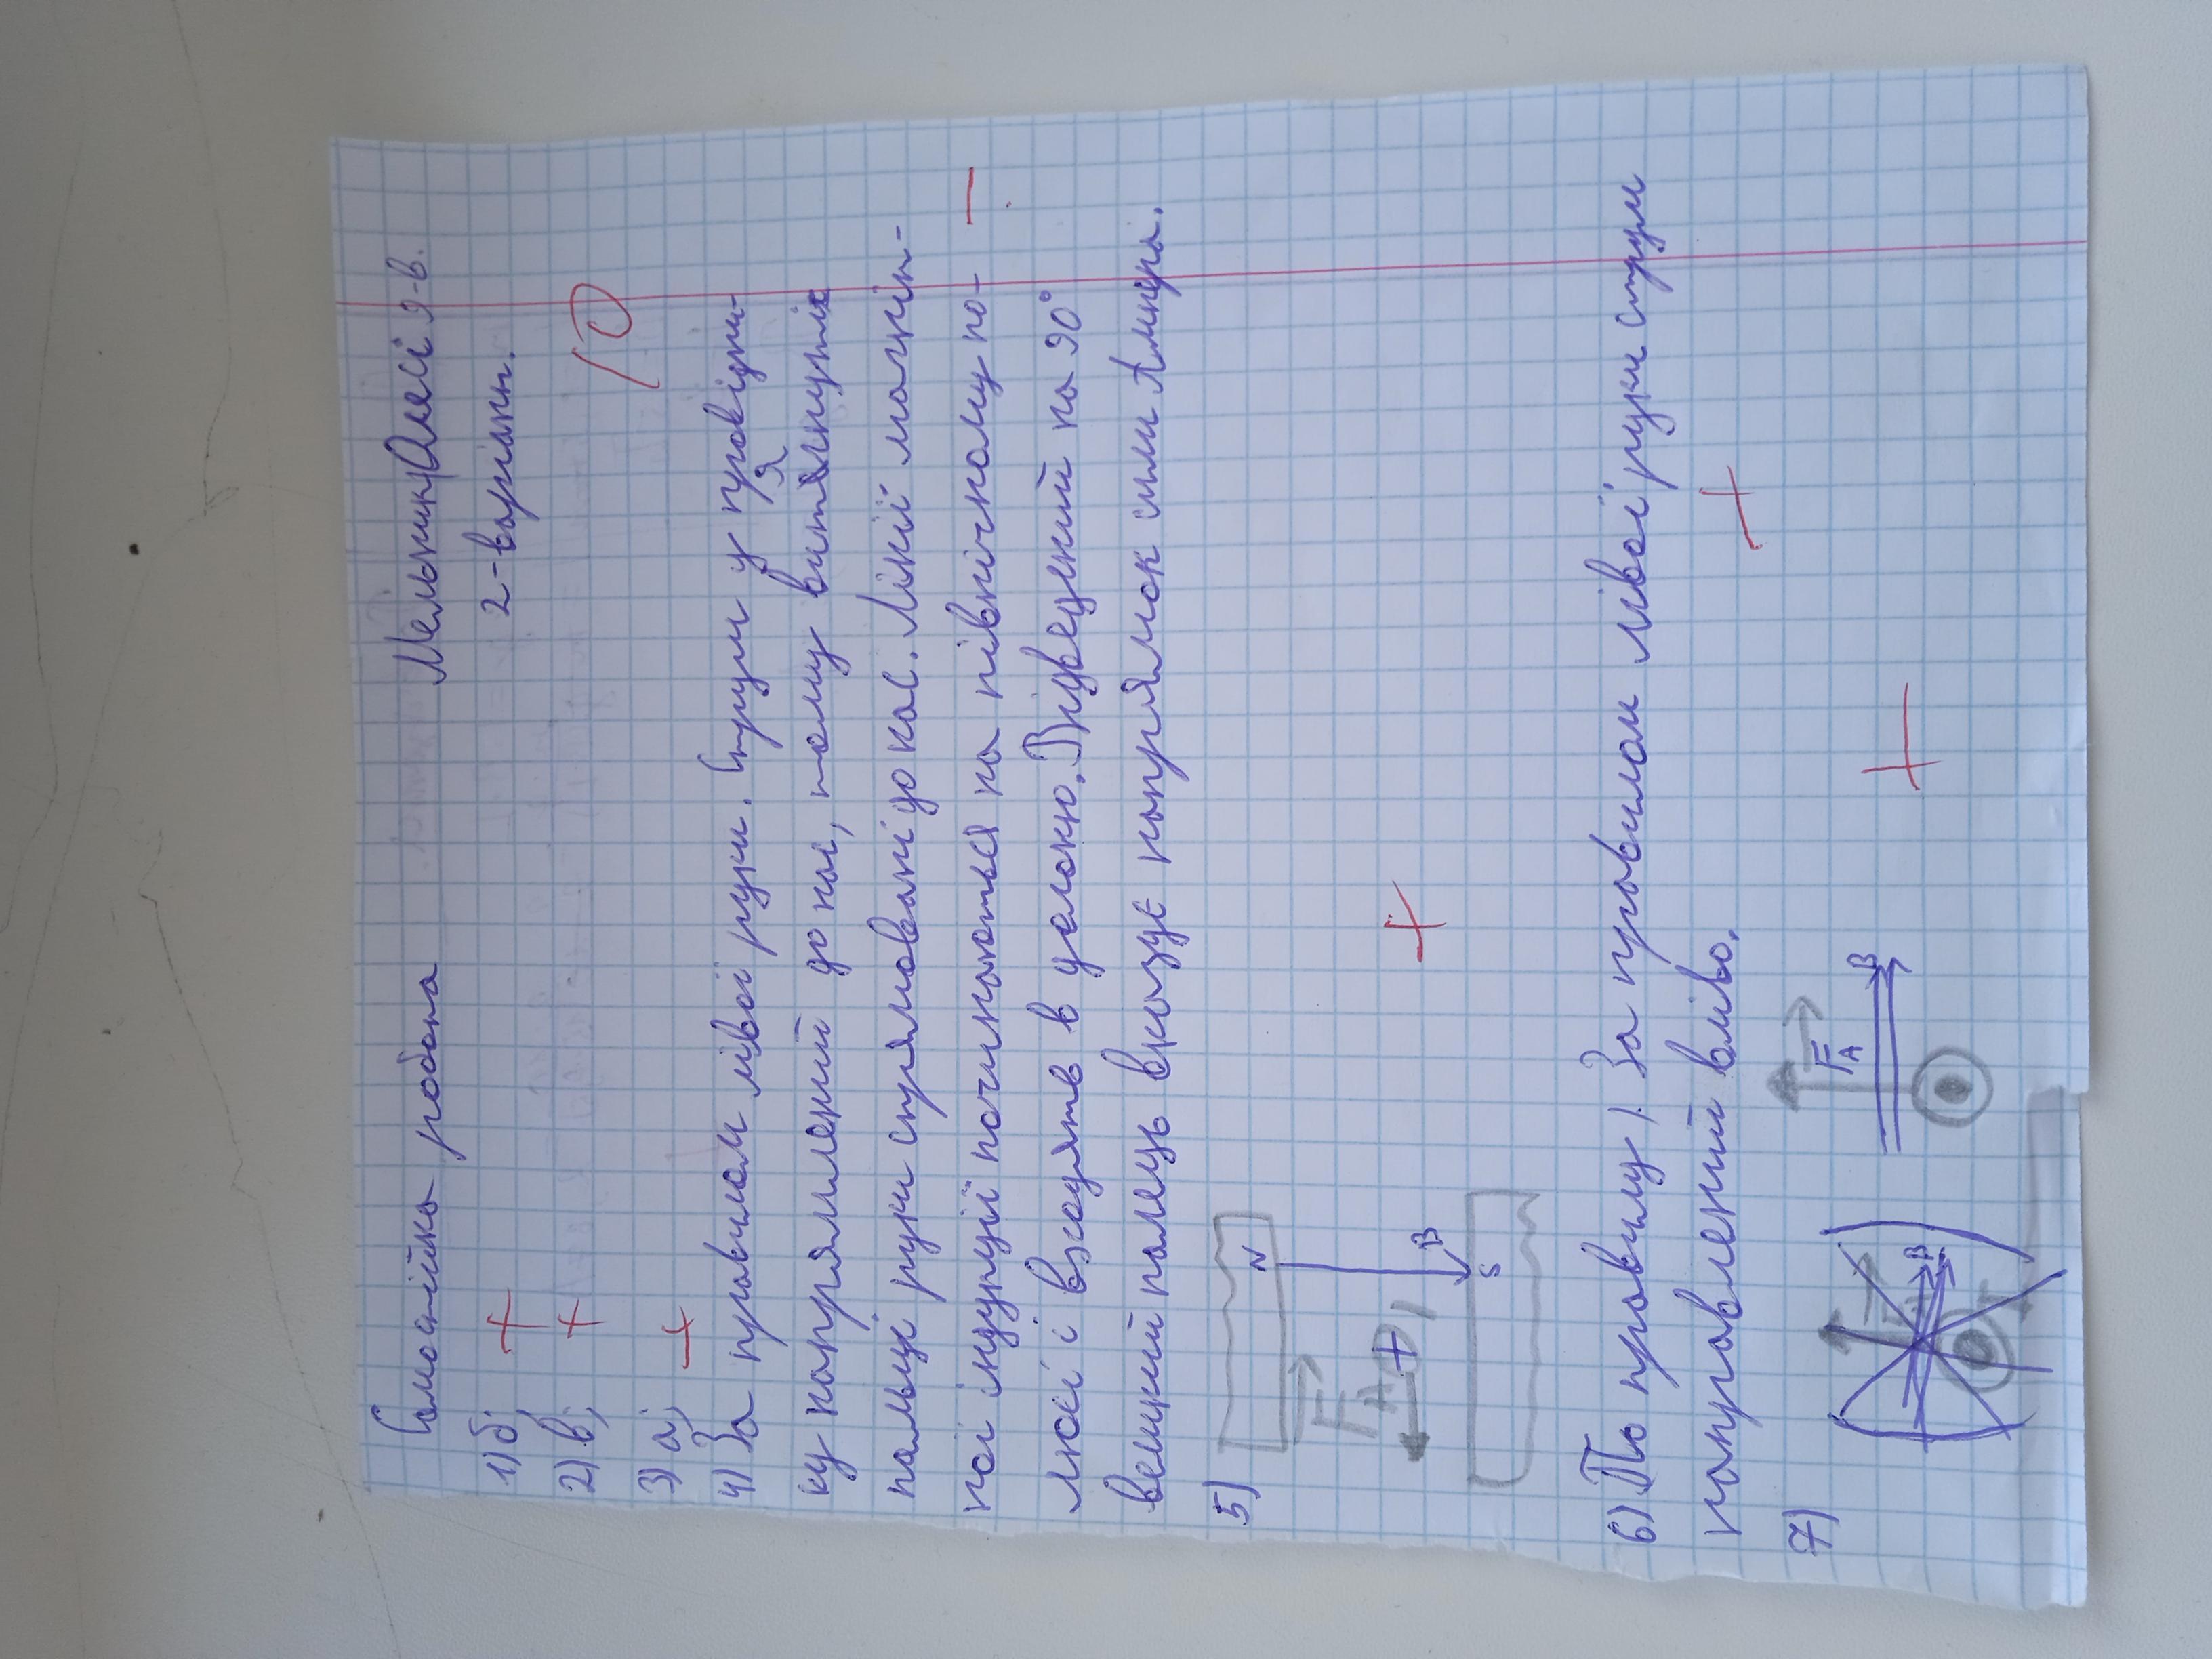 Самостійна робота Мельник Олесі 9-в.
2-варіант.
10
1) б;
2) в;
3) а;
4) За правилом лівої руки. Струм у провідни-
ку напрямлений до нас, тому витягнуті
пальці руки спрямовані до нас. Лінії магніт-
ної індукції починаються на північному по-
люсі і входять в долоню. Відведений на 90°
великий палець вказує напрямок сили Ампера.
5) N
F A
B
S
6) По правилу / За правилом лівої руки струм
направлений вліво.
7) B
F A B